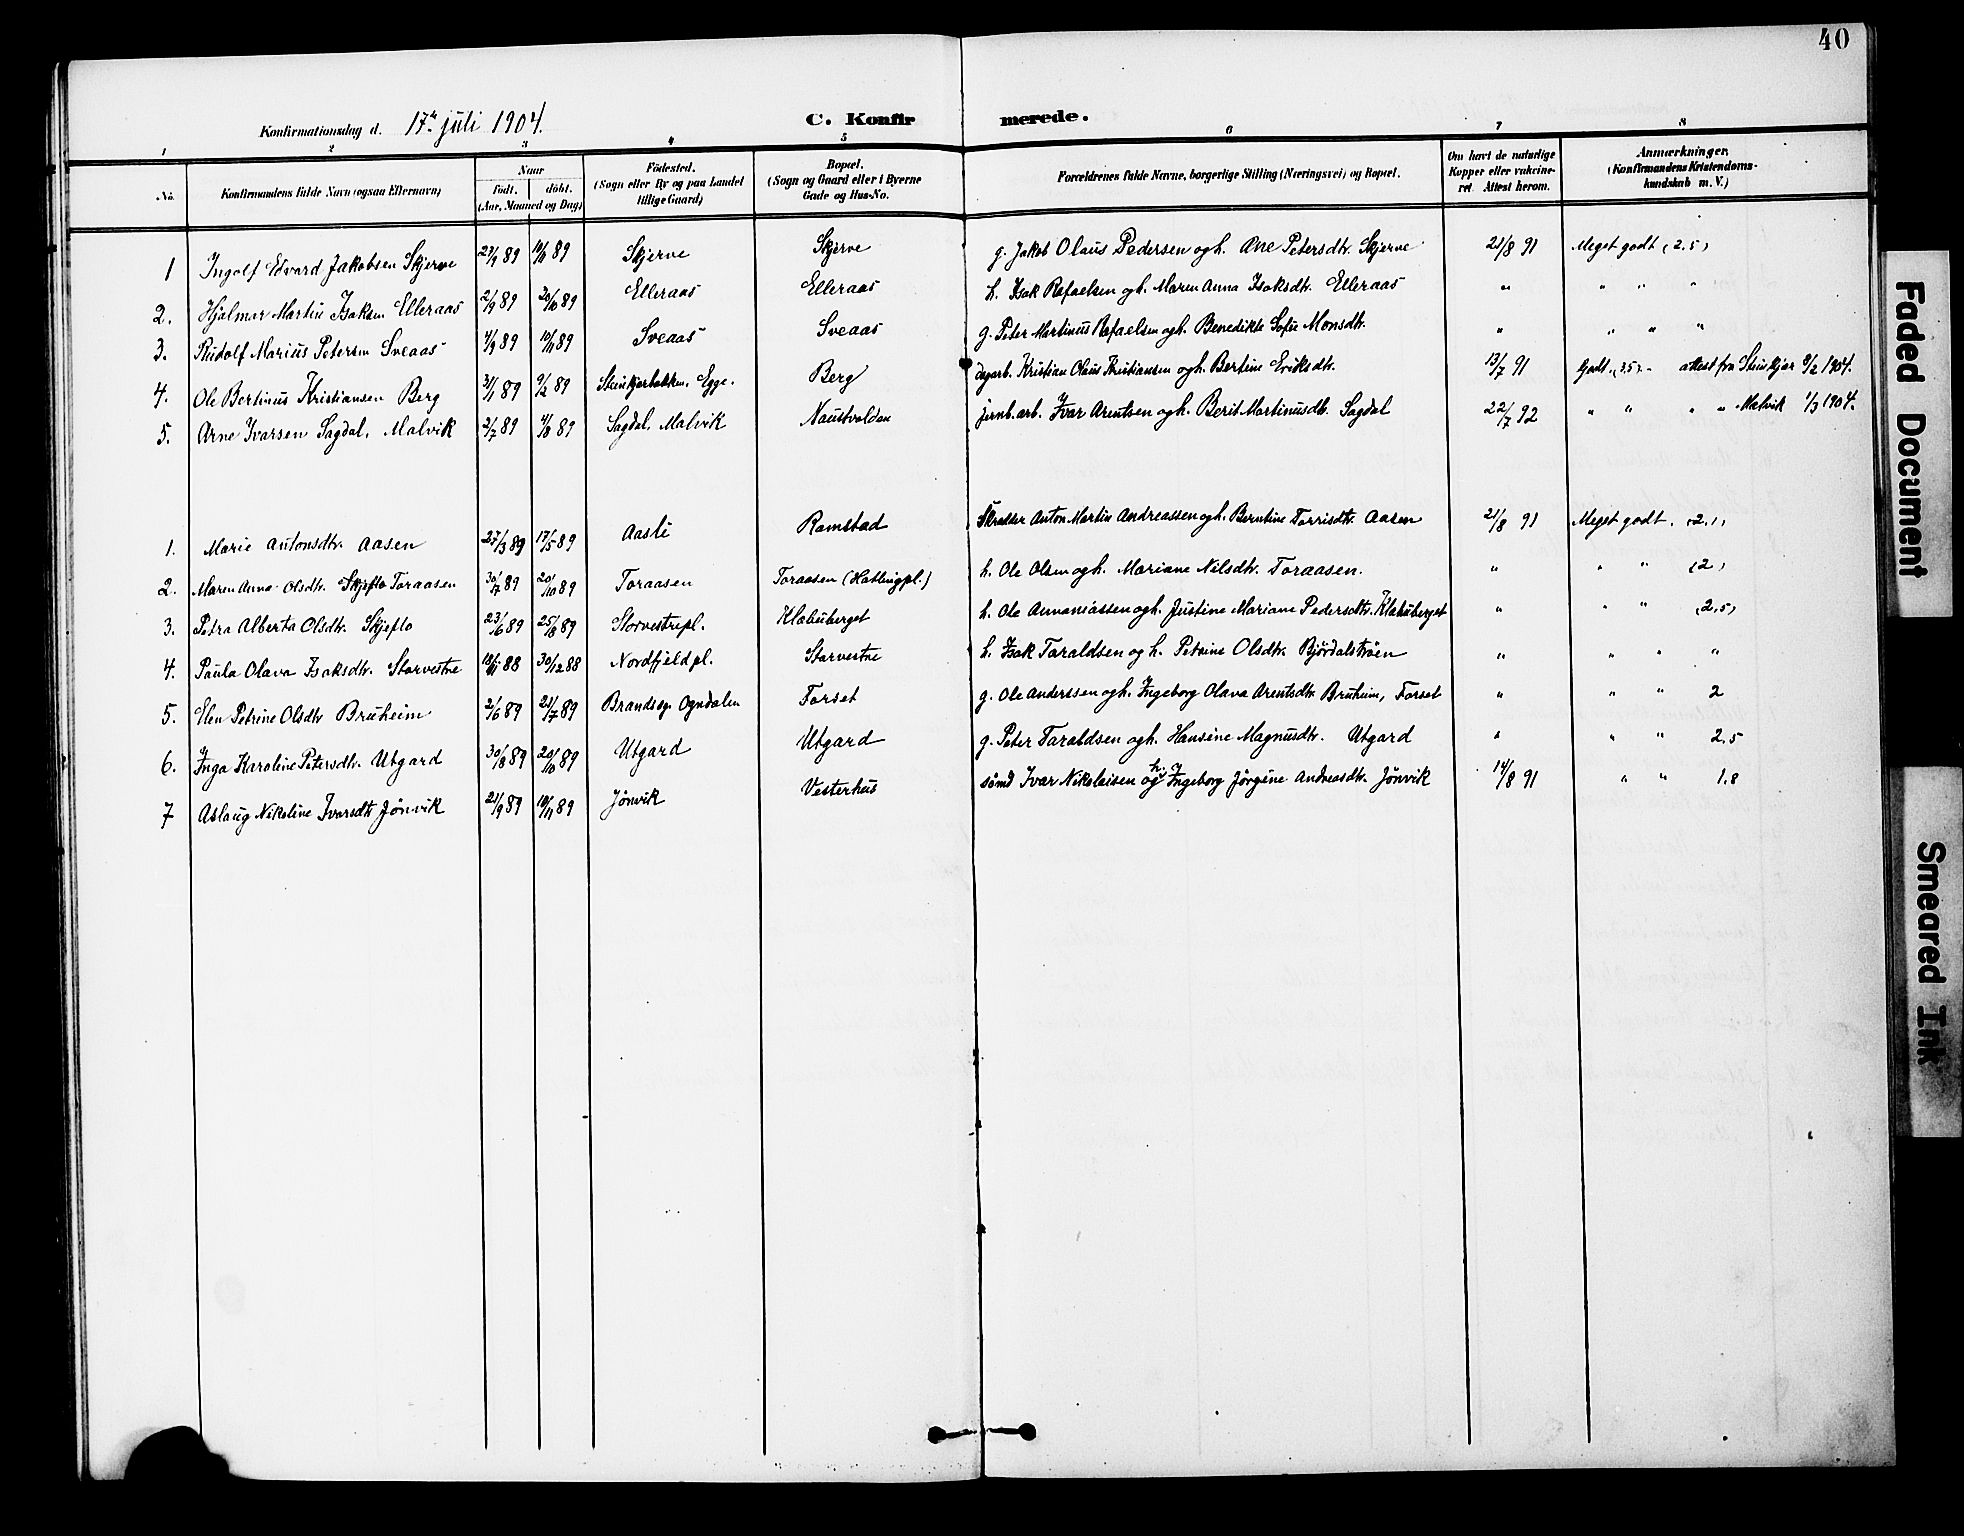 40
Konfirmationsdag d. 17de juli 1904. C. Konfirmerede.
1 2 3 4 5 6 7 8
No. Konfirmandens fulde Navn (ogsaa Efternavn) Naar Født. døbt. (Aar, Maaned og Dag) Fødested. (Sogn eller By og paa Landet tillige Gaard) Bopæl. (Sogn og Gaard eller i Byerne Gade og Hus-No. Forældrenes fulde Navne, borgerlige Stilling (Næringsvei) og Bopæl. Om havt de naturlige Kopper eller vakcineret. Attest herom. Anmærkninger. (Konfirmandens Kristendomskundskab m. V.)
1 Ingolf Edvard Jakobsen Skjerve 23/9 89 10/11 89 Skjerve Skjerve g. Jakob Olaus Pedersen og h. Ane Petersdtr. Skjerve 21/8 91 Meget godt (2,5)
2. Hjalmar Martin Isaksen Elleraas 2/9 89 20/10 89 Elleraas Elleraas h. Isak Rafaelsen og h. Maren Anna Isaksdtr. Elleraas " " " "
3. Rudolf Marius Petersen Sveaas 4/9 89 10/11 89 Sveaas Sveaas g. Peter Martinus Rafaelsen og h. Benedikte Sofie Monsdtr. " " " "
4. Ole Bertinus Kristiansen Berg 31/1 89 9/2 89 Steinkjerbakken, Egge. Berg dagarb. Kristian Olaus Kristiansen og h. Bertine Eriksdtr. 13/7 91 Godt. (3,5). - attest fra Steinkjær 9/2 1904.
5. Arne Ivarsen Sagdal, Malvik 2/7 89 4/8 89 Sagdal, Malvik Naustvolden jernb.arb. Ivar Arntsen og h. Berit Martinusdtr. Sagdal 22/7 92 " " " " Malvik 1/3 1904.
1. Marie Antonsdtr. Aasen 27/3 89 17/5 89 Aasli Ramstad Skrædder Anton Martin Andreassen og h. Berntine Torrisdtr. Aasen 21/8 91 Meget godt. (2,1)
2. Maren Anna Olsdtr. Skjeflo Toraasen 30/7 89 20/10 89 Toraasen Toraasen (Hatlingpl.) h. Ole Olsen og h. Mariane Nilsdtr. Toraasen. " " " (2)
3. Petra Alberta Olsdtr. Skjeflo 23/6 89 25/8 89 Storvestrepl. Klæbuberget h. Ole Annaniassen og h. Justine Mariane Pedersdtr. Klæbuberget " " " (2,5)
4. Paula Olava Isaksdtr. Storvestre 18/11 88 30/12 88 Nordfjeldpl. Storvestre h. Isak Taraldsen og h. Petrine Olsdtr. Bjørdalstrøen " " " "
5. Elen Petrine Olsdtr Bruheim 2/6 89 21/7 89 Brandseg. Ogndalen Forset g. Ole Anderssen og h. Ingeborg Olava Arntsdtr. Bruheim, Forset " " " 2
6. Inga Karoline Petersdtr. Utgard 30/8 89 20/10 89 Utgard Utgard g. Peter Taraldsen og h. Hansine Magnusdtr. Utgard " " " 2,5
7 Aslaug Nikoline Ivarsdtr Jønvik 21/9 89 10/11 89 Jønvik Vesterhus sømd Ivar Nikolaisen og h. Ingeborg Jørgine Andreasdtr. Jønvik 14/8 91 " " 1,8
Faded Document
Smeared Ink